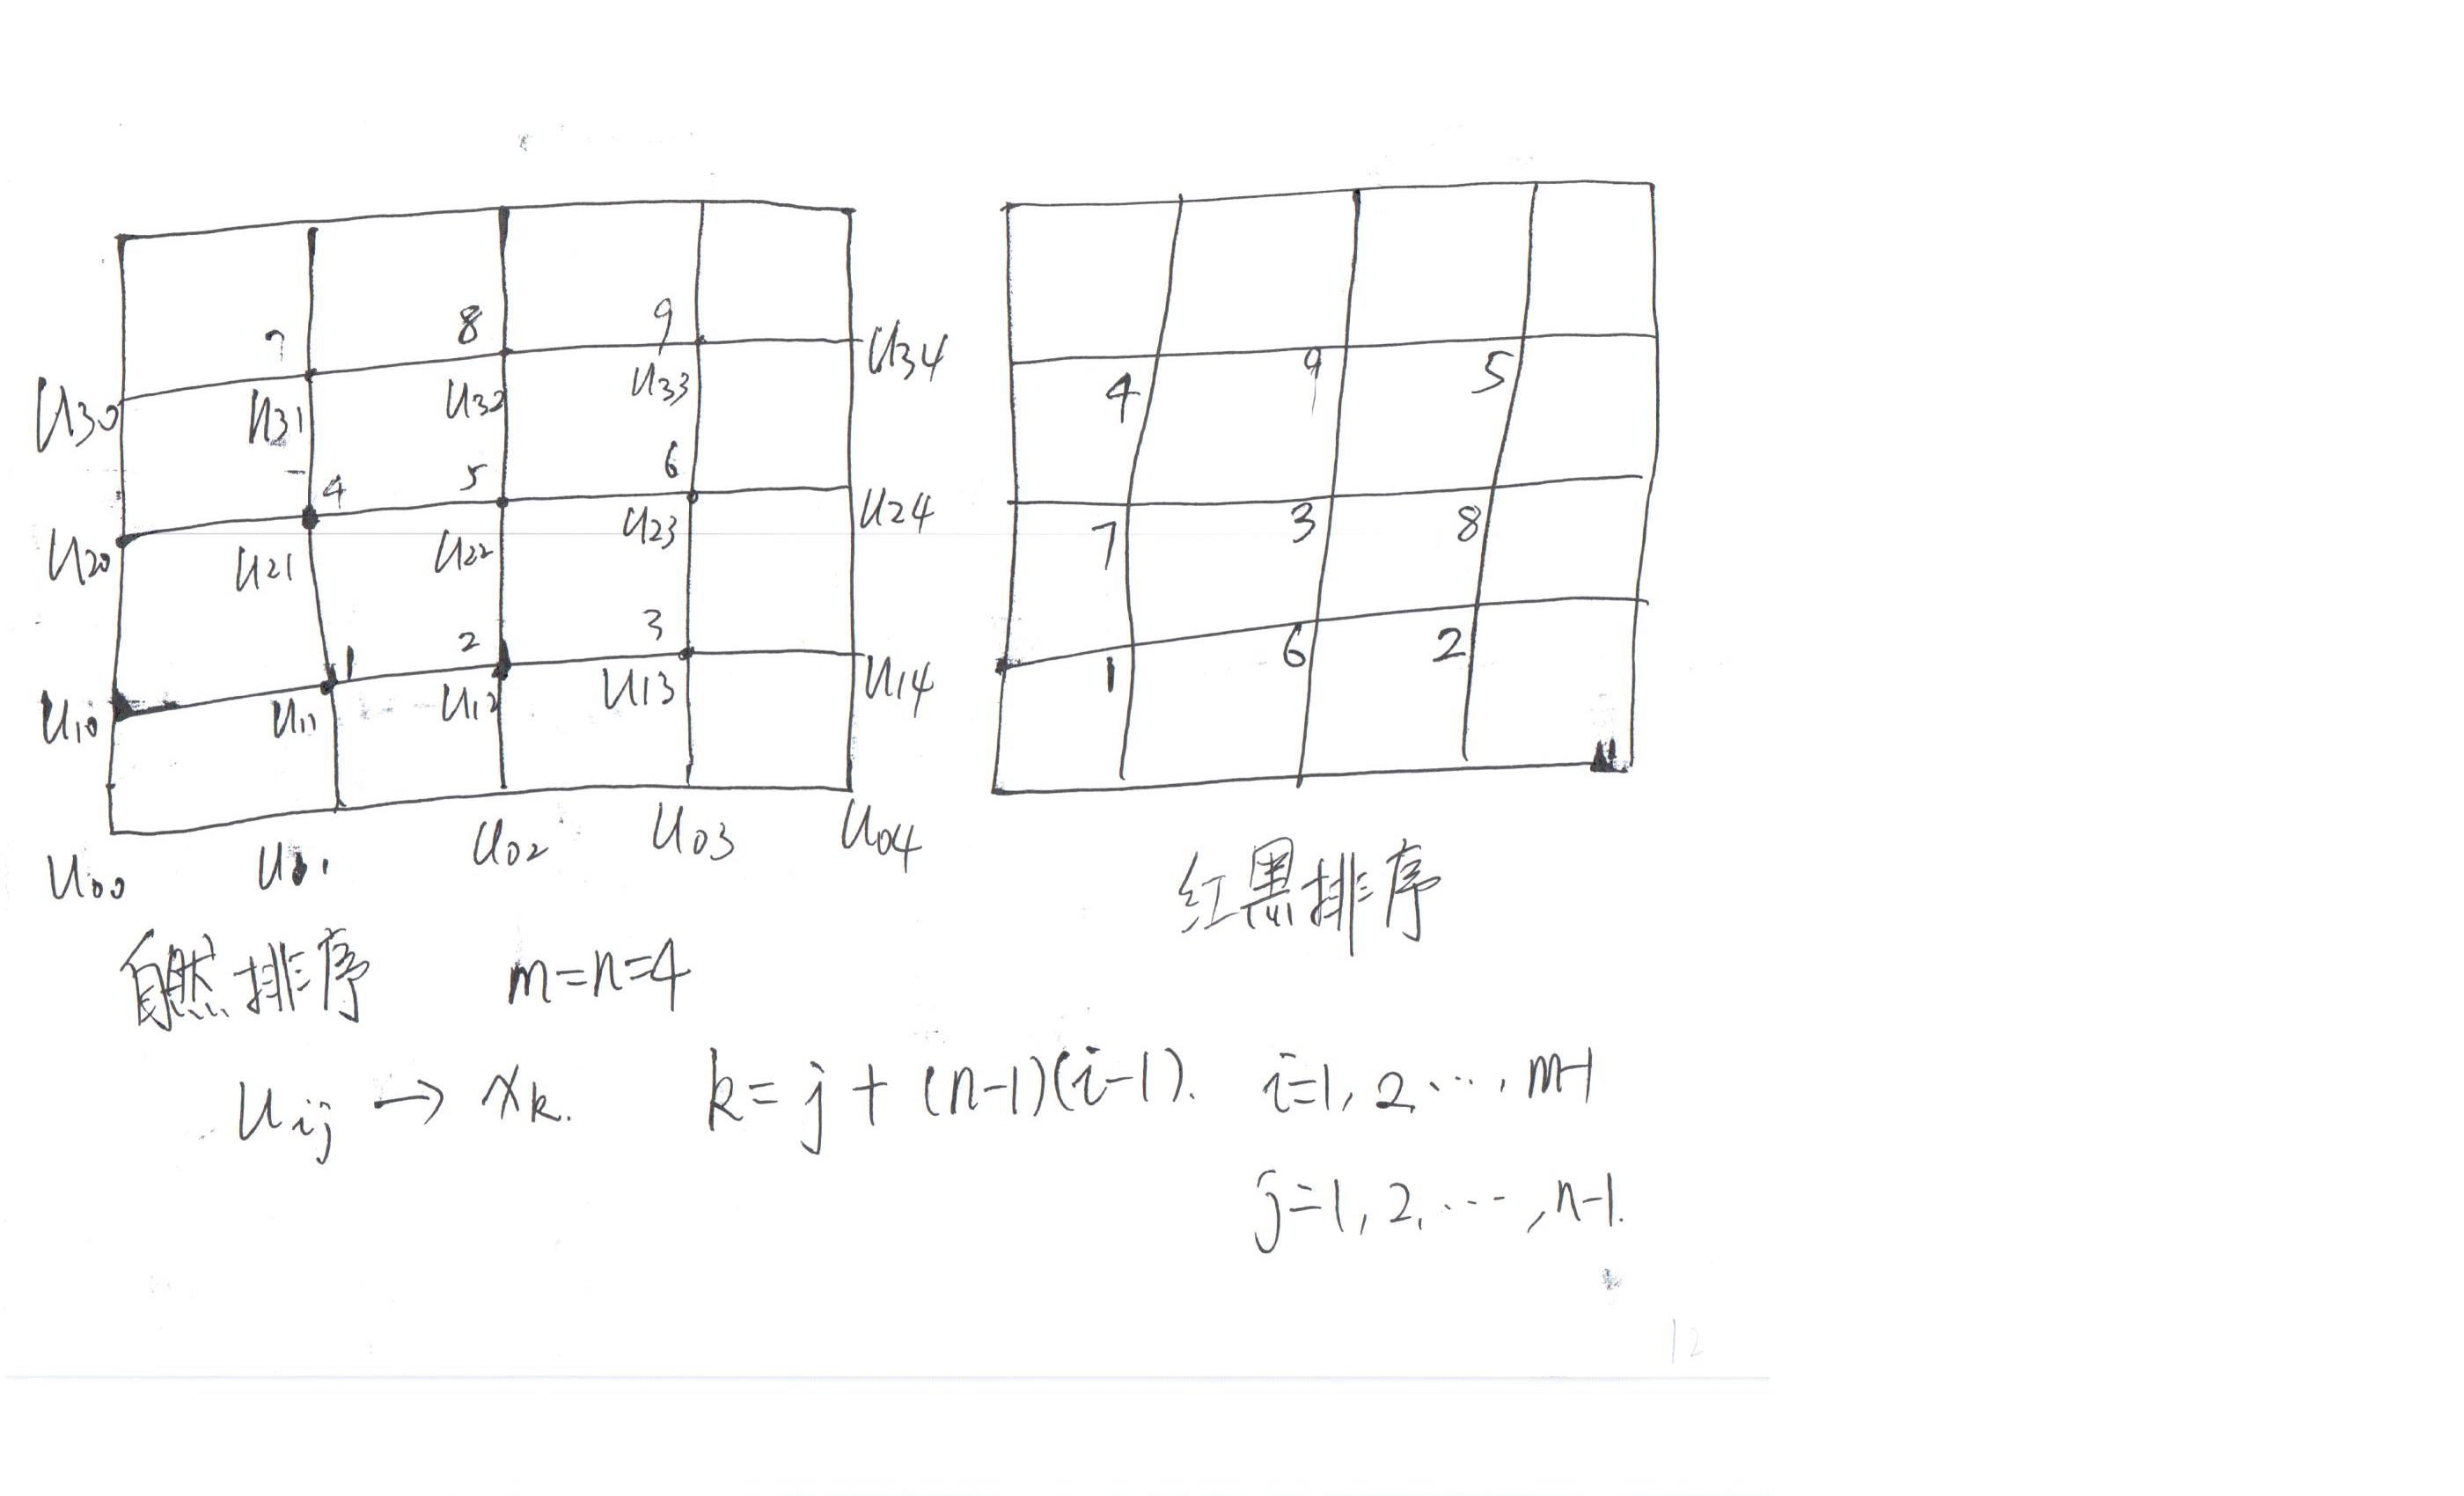 7 8 9
u30 u31 u32 u33 u34
4 5 6
u20 u21 u22 u23 u24
1 2 3
u10 u11 u12 u13 u14
u00 u01 u02 u03 u04
自然排序 m=n=4
4 9 5
7 3 8
1 6 2
红黑排序
uij → xk. k=j+(n-1)(i-1). i=1,2,…,m-1
j=1,2,…,n-1.
12